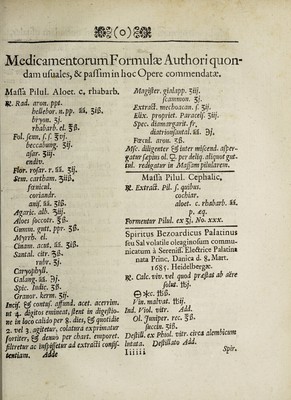 (o)
Medicamentorum Formulæ Authori quon-
dam usuales, & passim in hoc Opere commendatæ.
Massa Pilul. Aloet. c. rhabarb.
℞. Rad. aron. ppt.
hellebor. n. pp. āā. ʒiß.
bryon. ʒj.
rhabarb. el. ʒß.
Fol. senn. s. s. ʒvj.
beccabung. ʒij.
asar. ʒiij.
endiv.
Flor. rosar. r. āā. ʒj.
Sem. cartham. ʒiiß.
fœnicul.
coriandr.
anis. āā. ʒiß.
Agaric. alb. ʒiij.
Aloes soccotr. ℥ß.
Gumm. gutt. ppr. ℥ß.
Myrrh. el.
Cinam. acut. āā. ʒiß.
Santal. citr. ʒß.
rubr. ℈j.
Caryophyll.
Galang. āā. ℈j.
Spic. Indic. ʒß.
Granor. kerm. ʒij.
Incis. & contus. affund. acet. acerrim.
ut 4. digitos emineat, stent in digestio-
ne in loco calido per 8. dies, & quotidie
2. vel 3. agitetur, colatura exprimatur
fortiter, & denuo per chart. emporet.
filtretur ac inspissetur ad extracti consi-
stentiam. Adde
Magister. gialapp. ʒiij.
scammon. ʒj.
Extract. mechoacan. s. ʒij.
Elix. propriet. Paracels. ʒiij.
Spec. diamargarit. fr.
diatrionsantal. āā. ℈j.
Fœcul. aron. ʒß.
Misc. diligenter & inter miscend. asper-
gatur sæpius ol. per deliq. aliquot gut-
tul. redigatur in Massam pilularem.
Massa Pilul. Cephalic,
℞. Extract. Pil. s. quibus.
cochiar.
aloet. c. rhabarb. āā.
p. æq.
Formentur Pilul. ex ʒj. No. xxx.
Spiritus Bezoardicus Palatinus
seu Sal volatile oleaginosum commu-
nicatum à Sereniss. Electrice Palatina
nata Princ. Danica d. 8. Mart.
1685. Heidelbergæ.
℞. Calc. viv. vel quod præstat ab aëre
solut. ℔ij.
Vin. malvat. ℔iij.
Ind. Viol. vitr. Add.
Ol. Juniper. rec. ℥ß.
succin. ʒiß.
Destill. ex Phiol. vitr. circa alembicum
lutata. Destillato Add.
Iiiiii
Spir.